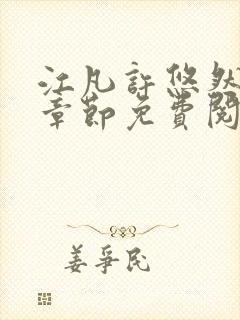 江凡許悠然
章節免費閱
姜爭民